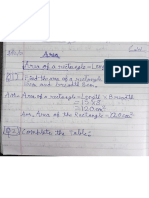 Area
Area of a rectangle = Leng
Q1 Find the area of a rectangle
and breadth 8cm.
Ans - Area of a rectangle = Length × Breadth
= 15×8
= 120cm²
Ans. Area of the Rectangle = 120cm²
Q2 Complete the table: